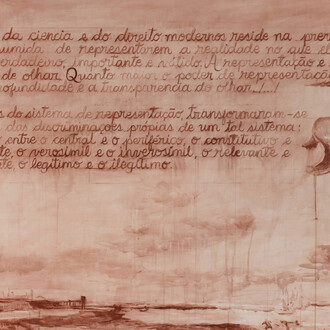 da ciência e do direito modernos reside na prer
umida de representarem a realidade no que el
erdadeiro, importante e válido. A representação é
de olhar. Quanto maior o poder de representação
ofundidade e a transparência do olhar /.../
s do sistema de representação transformaram-se
das discriminações própias de um tal sistema:
entre o central e o periférico, o constitutivo e
te, o verosímil e o inverosímil, o relevante e
te, o legítimo e o ilegítimo.